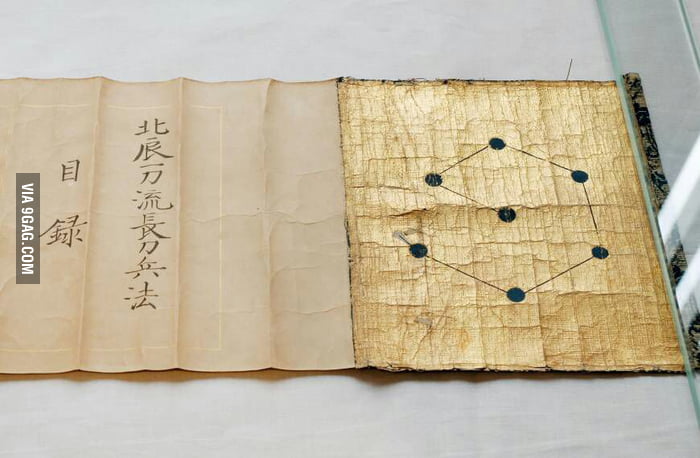 北辰一刀流長刀兵法
目録
VIA 9GAG.COM